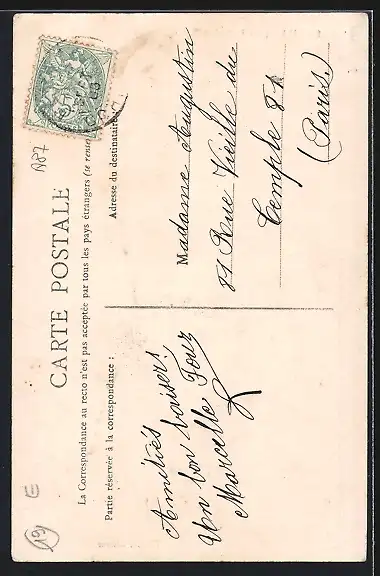 CARTE POSTALE
La Correspondance au recto n'est pas acceptée par tous les pays étrangers (se rense
Partie réservée à la correspondance :
Adresse du destinataire
Amitiés
Un bon baiser!
Marcelle Fouz
Madame Augustin
81 Rue Vieille du
Temple 81
(Paris)
A87
19
E